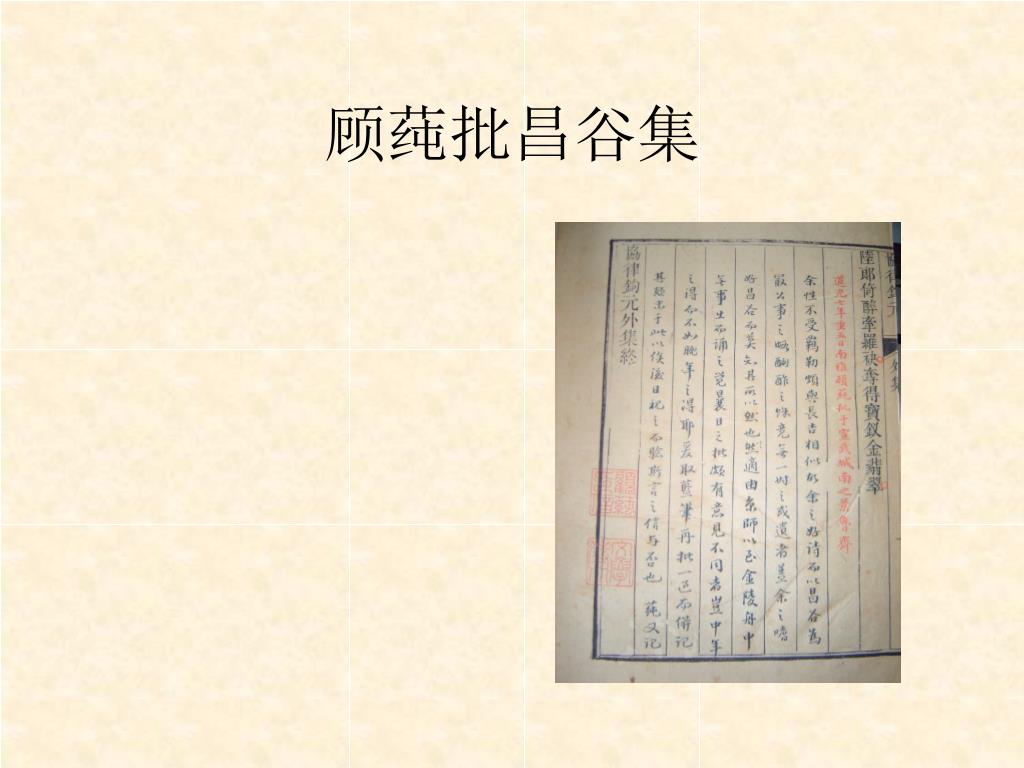 顾莼批昌谷集
協律鉤元 外集
陸郎倚醉牽羅袂奪得寶釵金翡翠
道光七年重五日南雅顧莼批于宣武城南之景魯齋
余性不受羈勒頗與長吉相似故余之好詩而以昌谷為
最公事之暇酬酢之餘竟無一時之或遺者蓋余之嗜
好昌谷而莫知其所以然也然適由京師以至金陵舟中
無事出而誦之覺曩日之批頗有意見不同者豈中年
之得而不如晚年之得耶爰取藍筆再批一過而備記
其顛末于此以俟後日視之而驗斯言之信與否也 莼又記
協律鉤元外集終